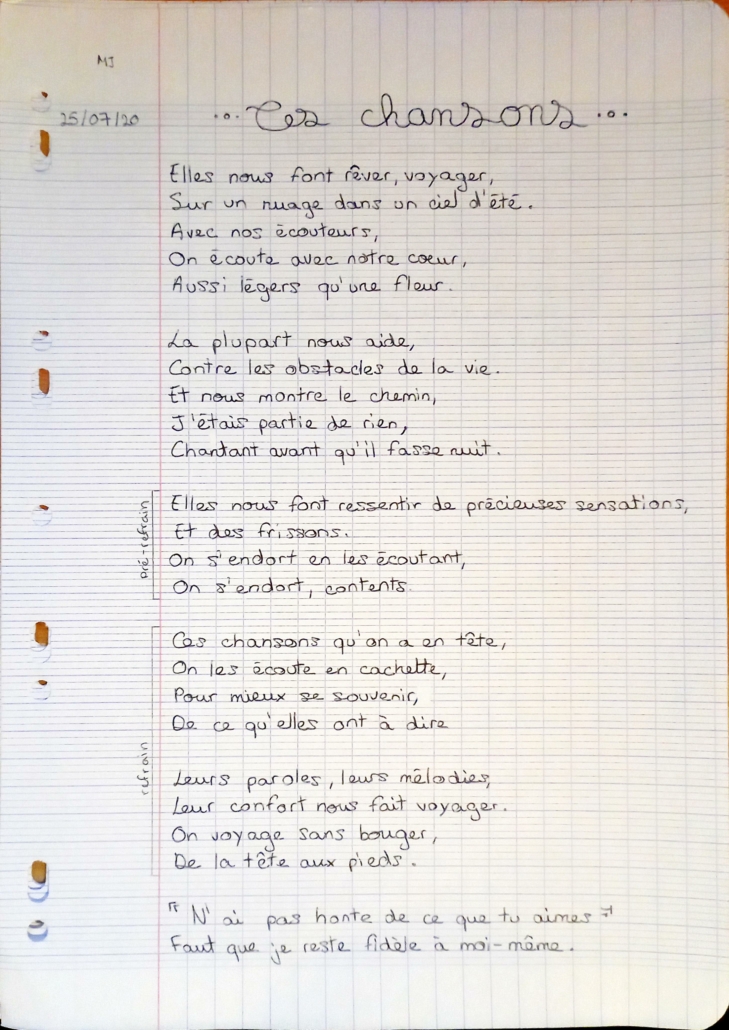 MJ
25/07/20
...Ces chansons...
Elles nous font rêver, voyager,
Sur un nuage dans un ciel d'été.
Avec nos écouteurs,
On écoute avec notre coeur,
Aussi légers qu'une fleur.
La plupart nous aide,
Contre les obstacles de la vie.
Et nous montre le chemin,
J'étais partie de rien,
Chantant avant qu'il fasse nuit.
pré-refrain
Elles nous font ressentir de précieuses sensations,
Et des frissons.
On s'endort en les écoutant,
On s'endort, contents.
refrain
Ces chansons qu'on a en tête,
On les écoute en cachette,
Pour mieux se souvenir,
De ce qu'elles ont à dire
Leurs paroles, leurs mélodies,
Leur confort nous fait voyager.
On voyage sans bouger,
De la tête aux pieds.
" N'ai pas honte de ce que tu aimes "
Faut que je reste fidèle à moi-même.